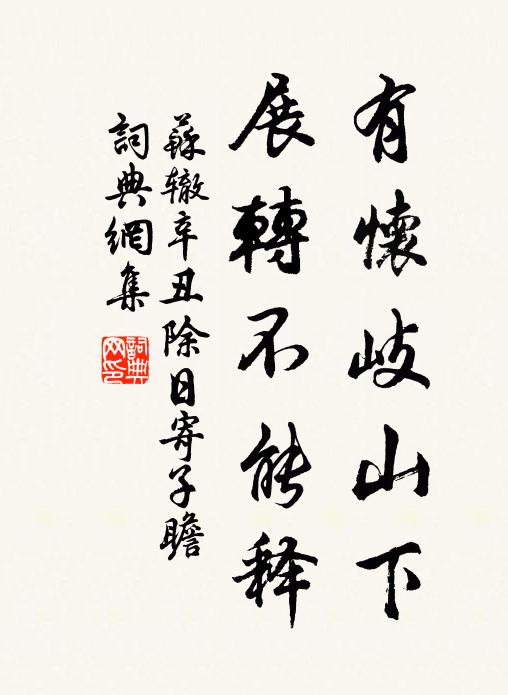 有懷岐山下
展轉不能释
蘇辙辛丑除日寄子瞻
詞典網集
詞典网印